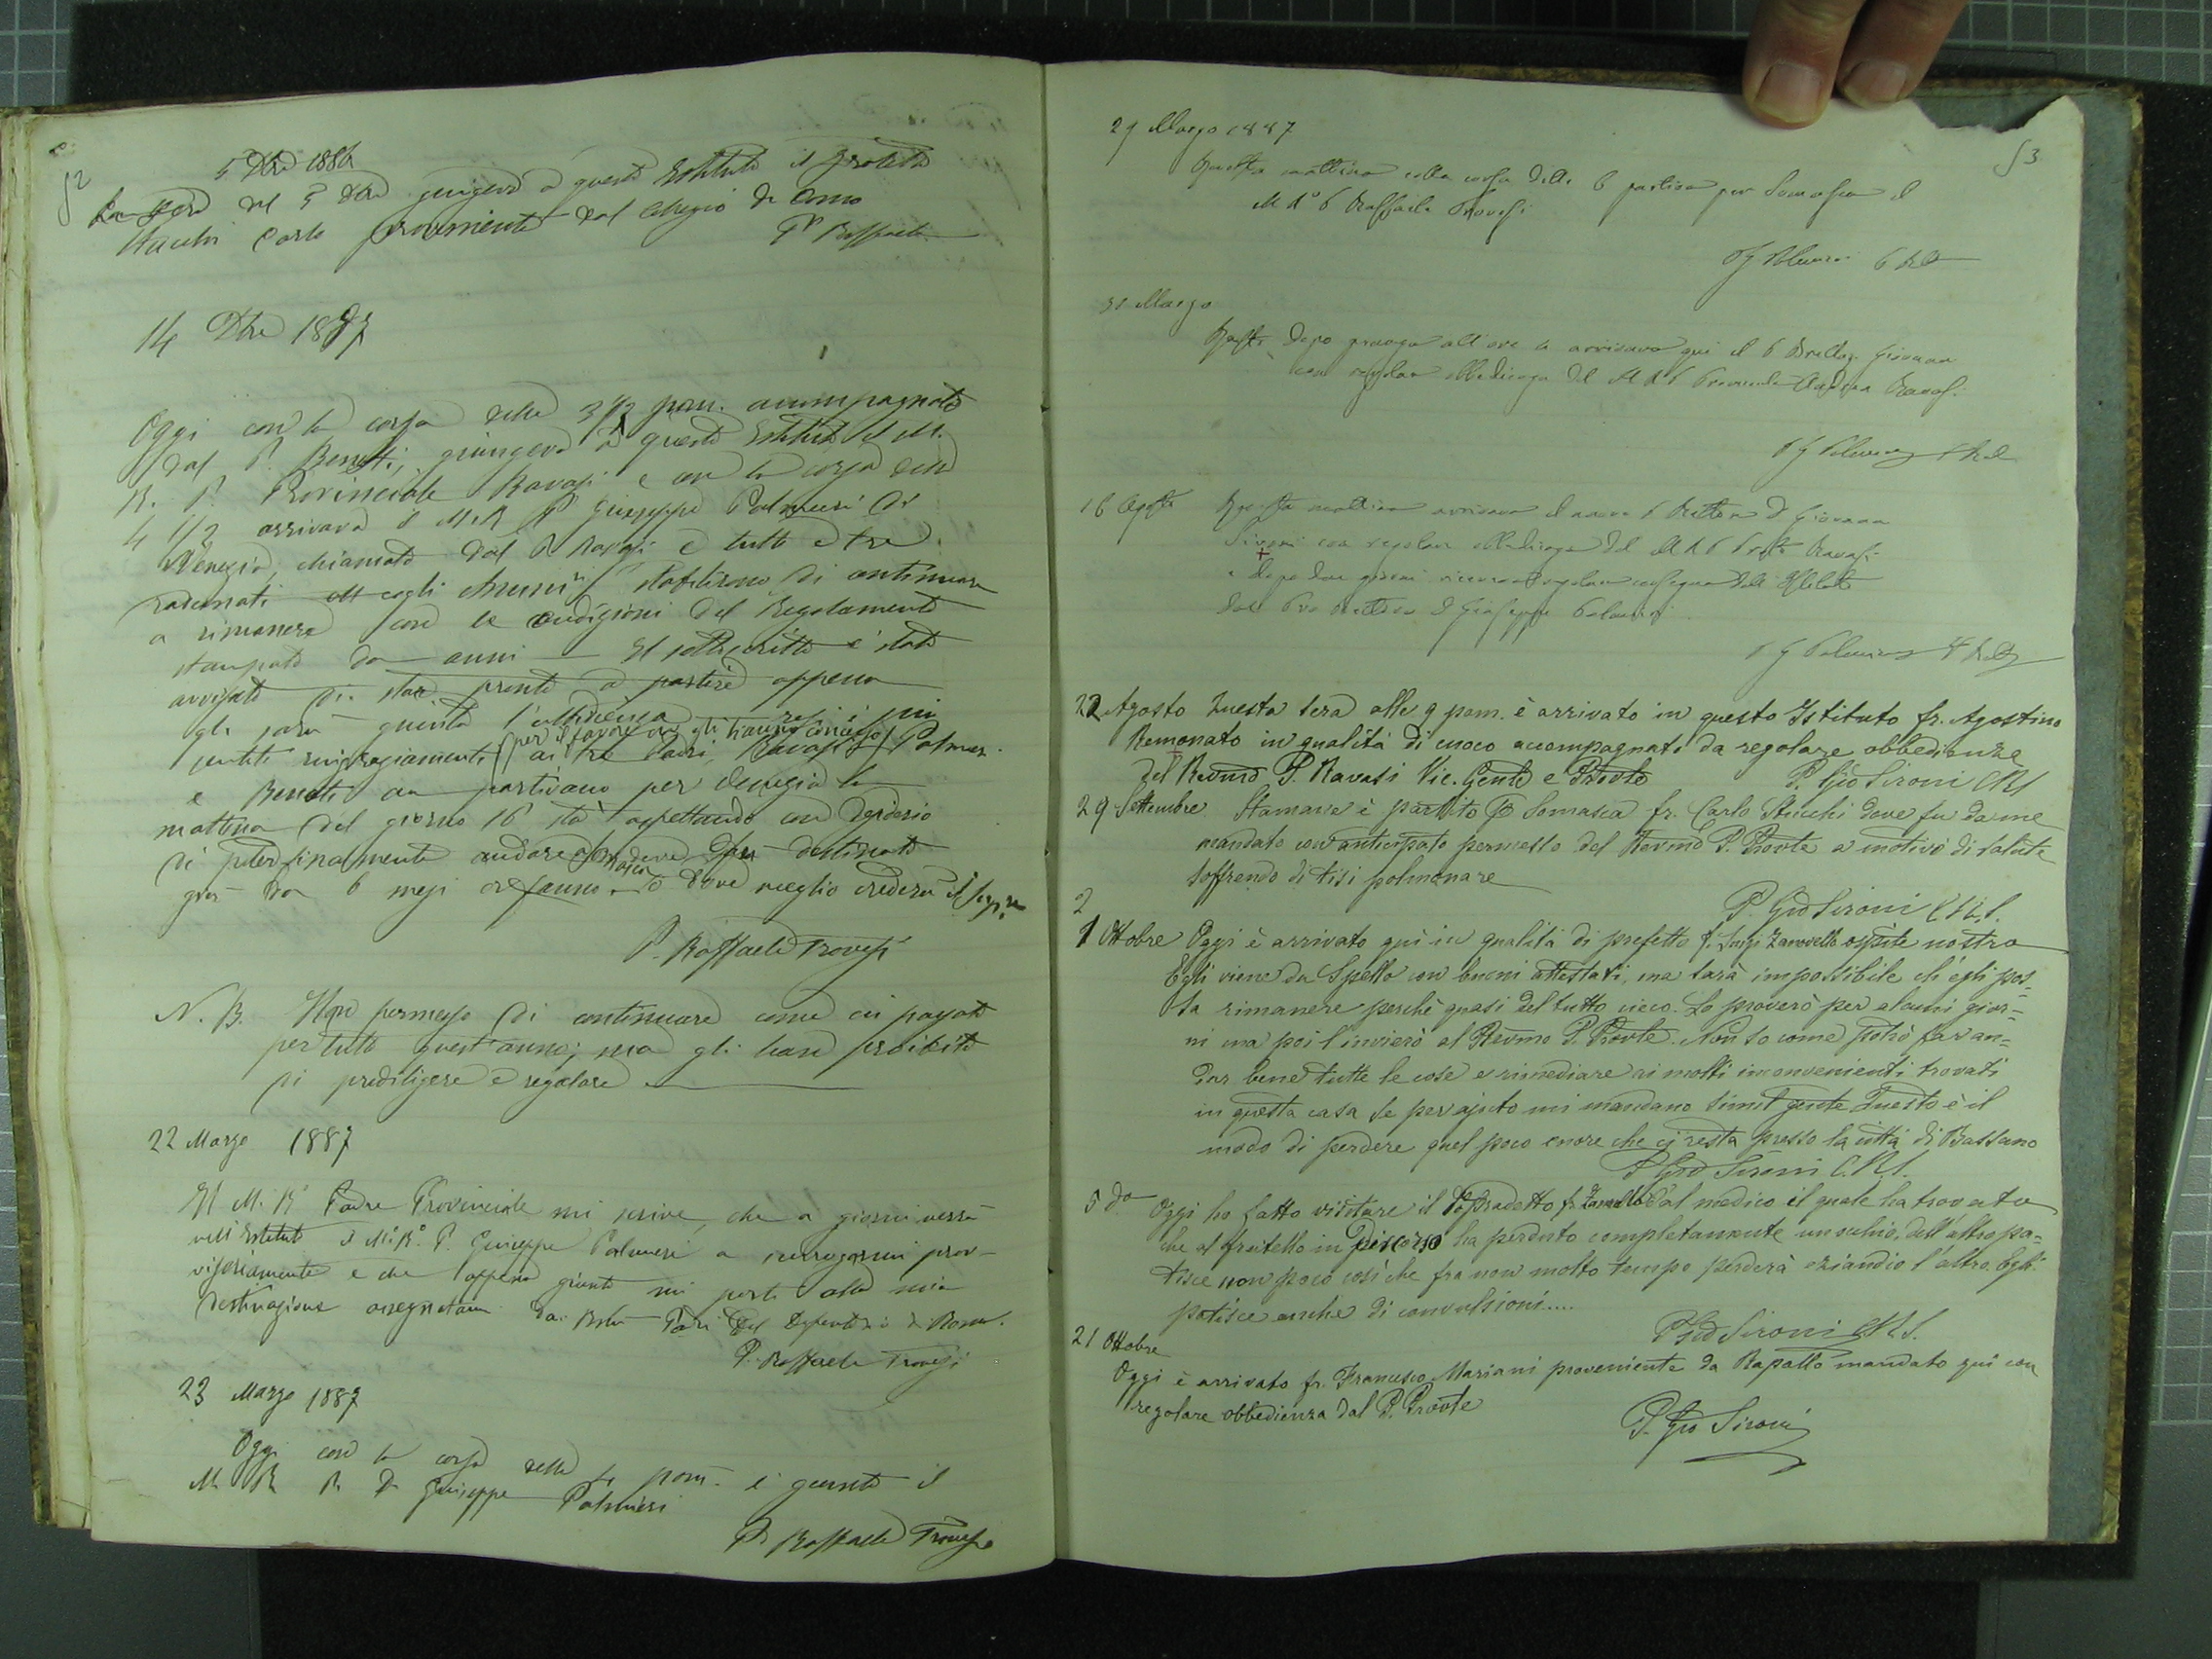 52
5 Xbre 1886
La sera del 5 Xbre giungeva a questo Istituto il prefetto
Stucchi Carlo proveniente dal Collegio di Como
P. Raffaele
14 Xbre 1887
Oggi con la corsa delle 3 1/2 pom. accompagnato
dal P. Benati, giungeva a questo Istituto il M.
R. P. Provinciale Ravasi e con la corsa delle
4 1/2 arrivava il M. R. P. Giuseppe Palmieri di
Venezia, chiamato dal P. Ravasi e tutti e tre
radunati cogli Alunni stabilirono di continuare
a rimanere con le condizioni del Regolamento
stampato da anni — Il sottoscritto è stato
avvisato di star pronto a partire appena
gli sarà giunta l'ubbidienza resi i più
sentiti ringraziamenti (per il favore che gli hanno concesso) ai tre Padri, Ravasi, Palmieri
e Benati che partivano per Venezia la
mattina del giorno 16 stà aspettando con desiderio
di poter finalmente andare a Somasca dove destinato
già da 6 mesi or fanno o dove meglio crederà il
P. Raffaele Trovesi
N. B. Hanno permesso di continuare come in passato
per tutto quest'anno; ma gli hanno proibito
di prediligere e regalare
22 Marzo 1887
Il M. Rº Padre Provinciale mi scrive, che a giorni verrà
nell'Istituto il M. Rº P. Giuseppe Palmieri a surrogarmi prov-
visoriamente e che appena giunto mi porti alla mia
destinazione assegnatami dai Padri del Definitorio di Roma.
P. Raffaele Trovesi
23 Marzo 1887
Oggi con la corsa delle 4 pom. è giunto il
M. R. P. D. Giuseppe Palmieri
P. Raffaele Trovesi
53
29 Marzo 1887
Questa mattina colla corsa delle 6 partiva per Somasca il
M Rº P Raffaele Trovesi
P G Palmieri
31 Marzo
Quest' dopo pranzo all'ore arrivava qui il P Giovanni
con regolare obbedienza del M R P Provinciale Andrea Ravasi
P G Palmieri
16 Agosto Questa mattina arrivava il nuovo P Rettore D Giovanni
Sironi con regolare obbedienza del M R P Ravasi
e dopo due giorni riceveva regolare consegna dell'Istituto
dal Pro Rettore D Giuseppe Palmieri
P G Palmieri
22 Agosto Questa sera alle 9 pom. è arrivato in questo Istituto fr. Agostino
Remonato in qualità di cuoco accompagnato da regolare obbedienza
del Revmo P. Ravasi Vic. Gente e Provle P. Gio Sironi CRS
29 Settembre Stamane è partito per Somasca fr. Carlo Stucchi dove fu da me
mandato con anticipato permesso del Revmo P. Provle a motivo di salute
soffrendo di tisi polmonare
P. Gio Sironi C R. S.
2
1 Ottobre Oggi è arrivato quì in qualità di prefetto f. Luigi Zanovello ospite nostro
Egli viene da Spello con buoni attestati, ma sarà impossibile ch'egli pos-
sa rimanere perchè quasi del tutto cieco. Lo proverò per alcuni gior-
ni ma poi l'invierò al Revmo P. Provle. Non so come potrò far an-
dar bene tutte le cose e rimediare ai molti inconvenienti trovati
in questa casa se per ajuto mi mandano simil gente Questo è il
modo di perdere quel poco onore che ci resta presso la città di Bassano
P Gio Sironi C.R.S.
5 do Oggi ho fatto visitare il sopradetto fr Zanovello dal medico il quale ha trovato
che il fratello in discorso ha perduto completamente un occhio, dell'altro pa-
tisce non poco così che fra non molto tempo perderà eziandio l'altro. Egli
patisce anche di convulsioni.....
P Gio Sironi CRS.
21 Ottobre
Oggi è arrivato fr. Francesco Mariani proveniente da Rapallo mandato qui con
regolare obbedienza dal P. Provle
P. Gio Sironi